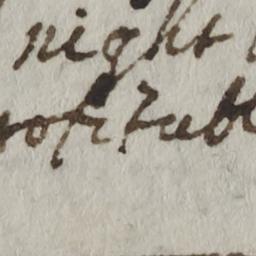 night
rofitabl